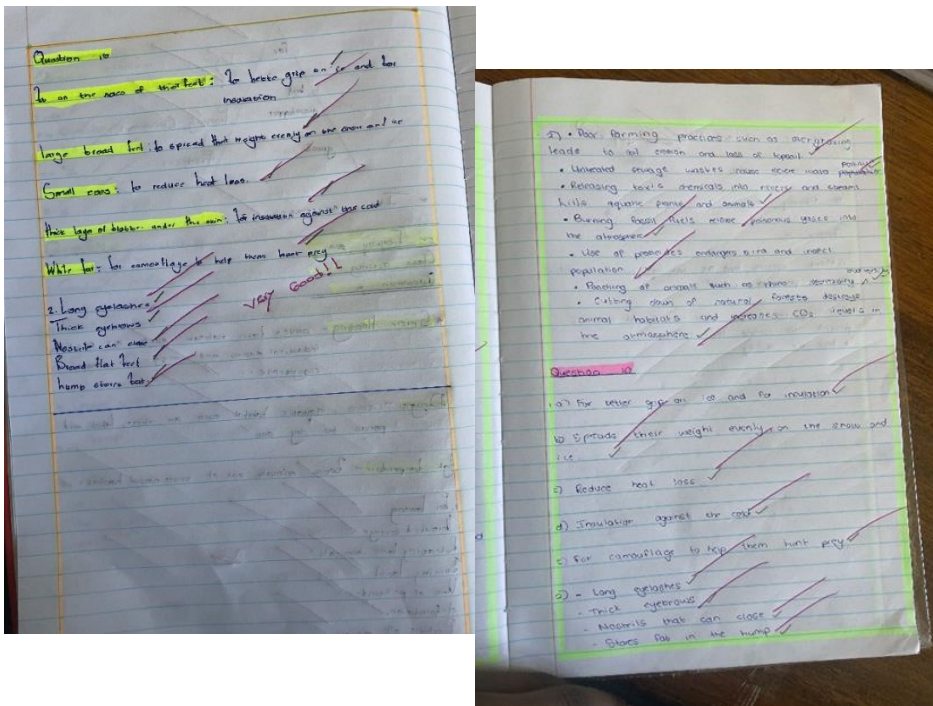 Question 10
on the soles of their feet: To better grip on ice and for
insulation
large broad feet: to spread that weight evenly on the snow and ice
Small ears: to reduce heat loss.
thick layer of blubber under the skin: for insulation against the cold
White fur: for camouflage to help them hunt prey
VERY Good!!
2. Long eyelashes
Thick eyebrows
Nostrils can close
Broad flat feet
hump stores fat
• Poor farming practices such as overgrazing
leads to soil erosion and loss of topsoil
• Untreated sewage washes cause water pollution
• Releasing toxic chemicals into rivers and streams
kills aquatic plants and animals
• Burning fossil fuels release poisonous gases into
the atmosphere
• Use of pesticides endangers bird and insect
population
• Poaching of animals such as rhino
• Cutting down of natural forests destroys
animal habitats and increases CO2 levels in
the atmosphere
Question 10
1. a) For better grip on ice and for insulation
b) Spreads their weight evenly on the snow and
ice
c) Reduce heat loss
d) Insulation against the cold
For camouflage to help them hunt prey
2) - Long eyelashes
- Thick eyebrows
- Nostrils that can close
- Stores fat in the hump